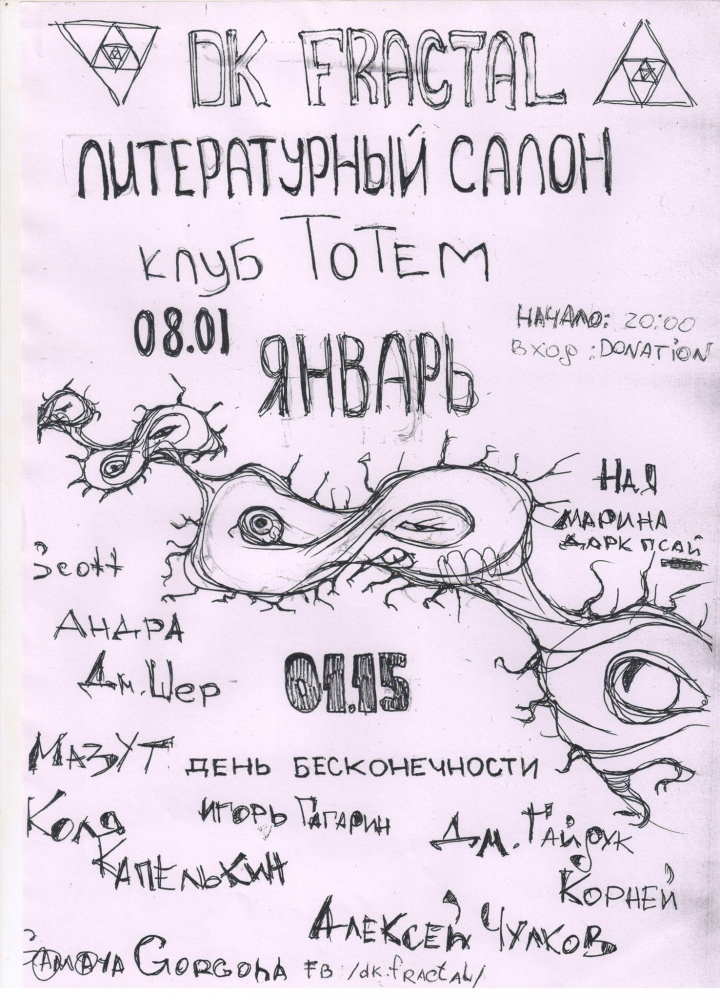 DK FRACTAL
ЛИТЕРАТУРНЫЙ САЛОН
КЛУБ ТОТЕМ
08.01
НАЧАЛО: 20:00
ВХОД : DONATION
ЯНВАРЬ
НАЯ
МАРИНА
ДАРК ПСАЙ
Scott
АНДРА
Дм. Шер
01.15
МАЗУТ
ДЕНЬ БЕСКОНЕЧНОСТИ
Коля
КАПЕЛЬКИН
ИГОРЬ ГАГАРИН
Дм. Гайдук
КОРНЕЙ
АЛЕКСЕЙ ЧУЛКОВ
GORGONA
FB:/dk.fRACTAL/